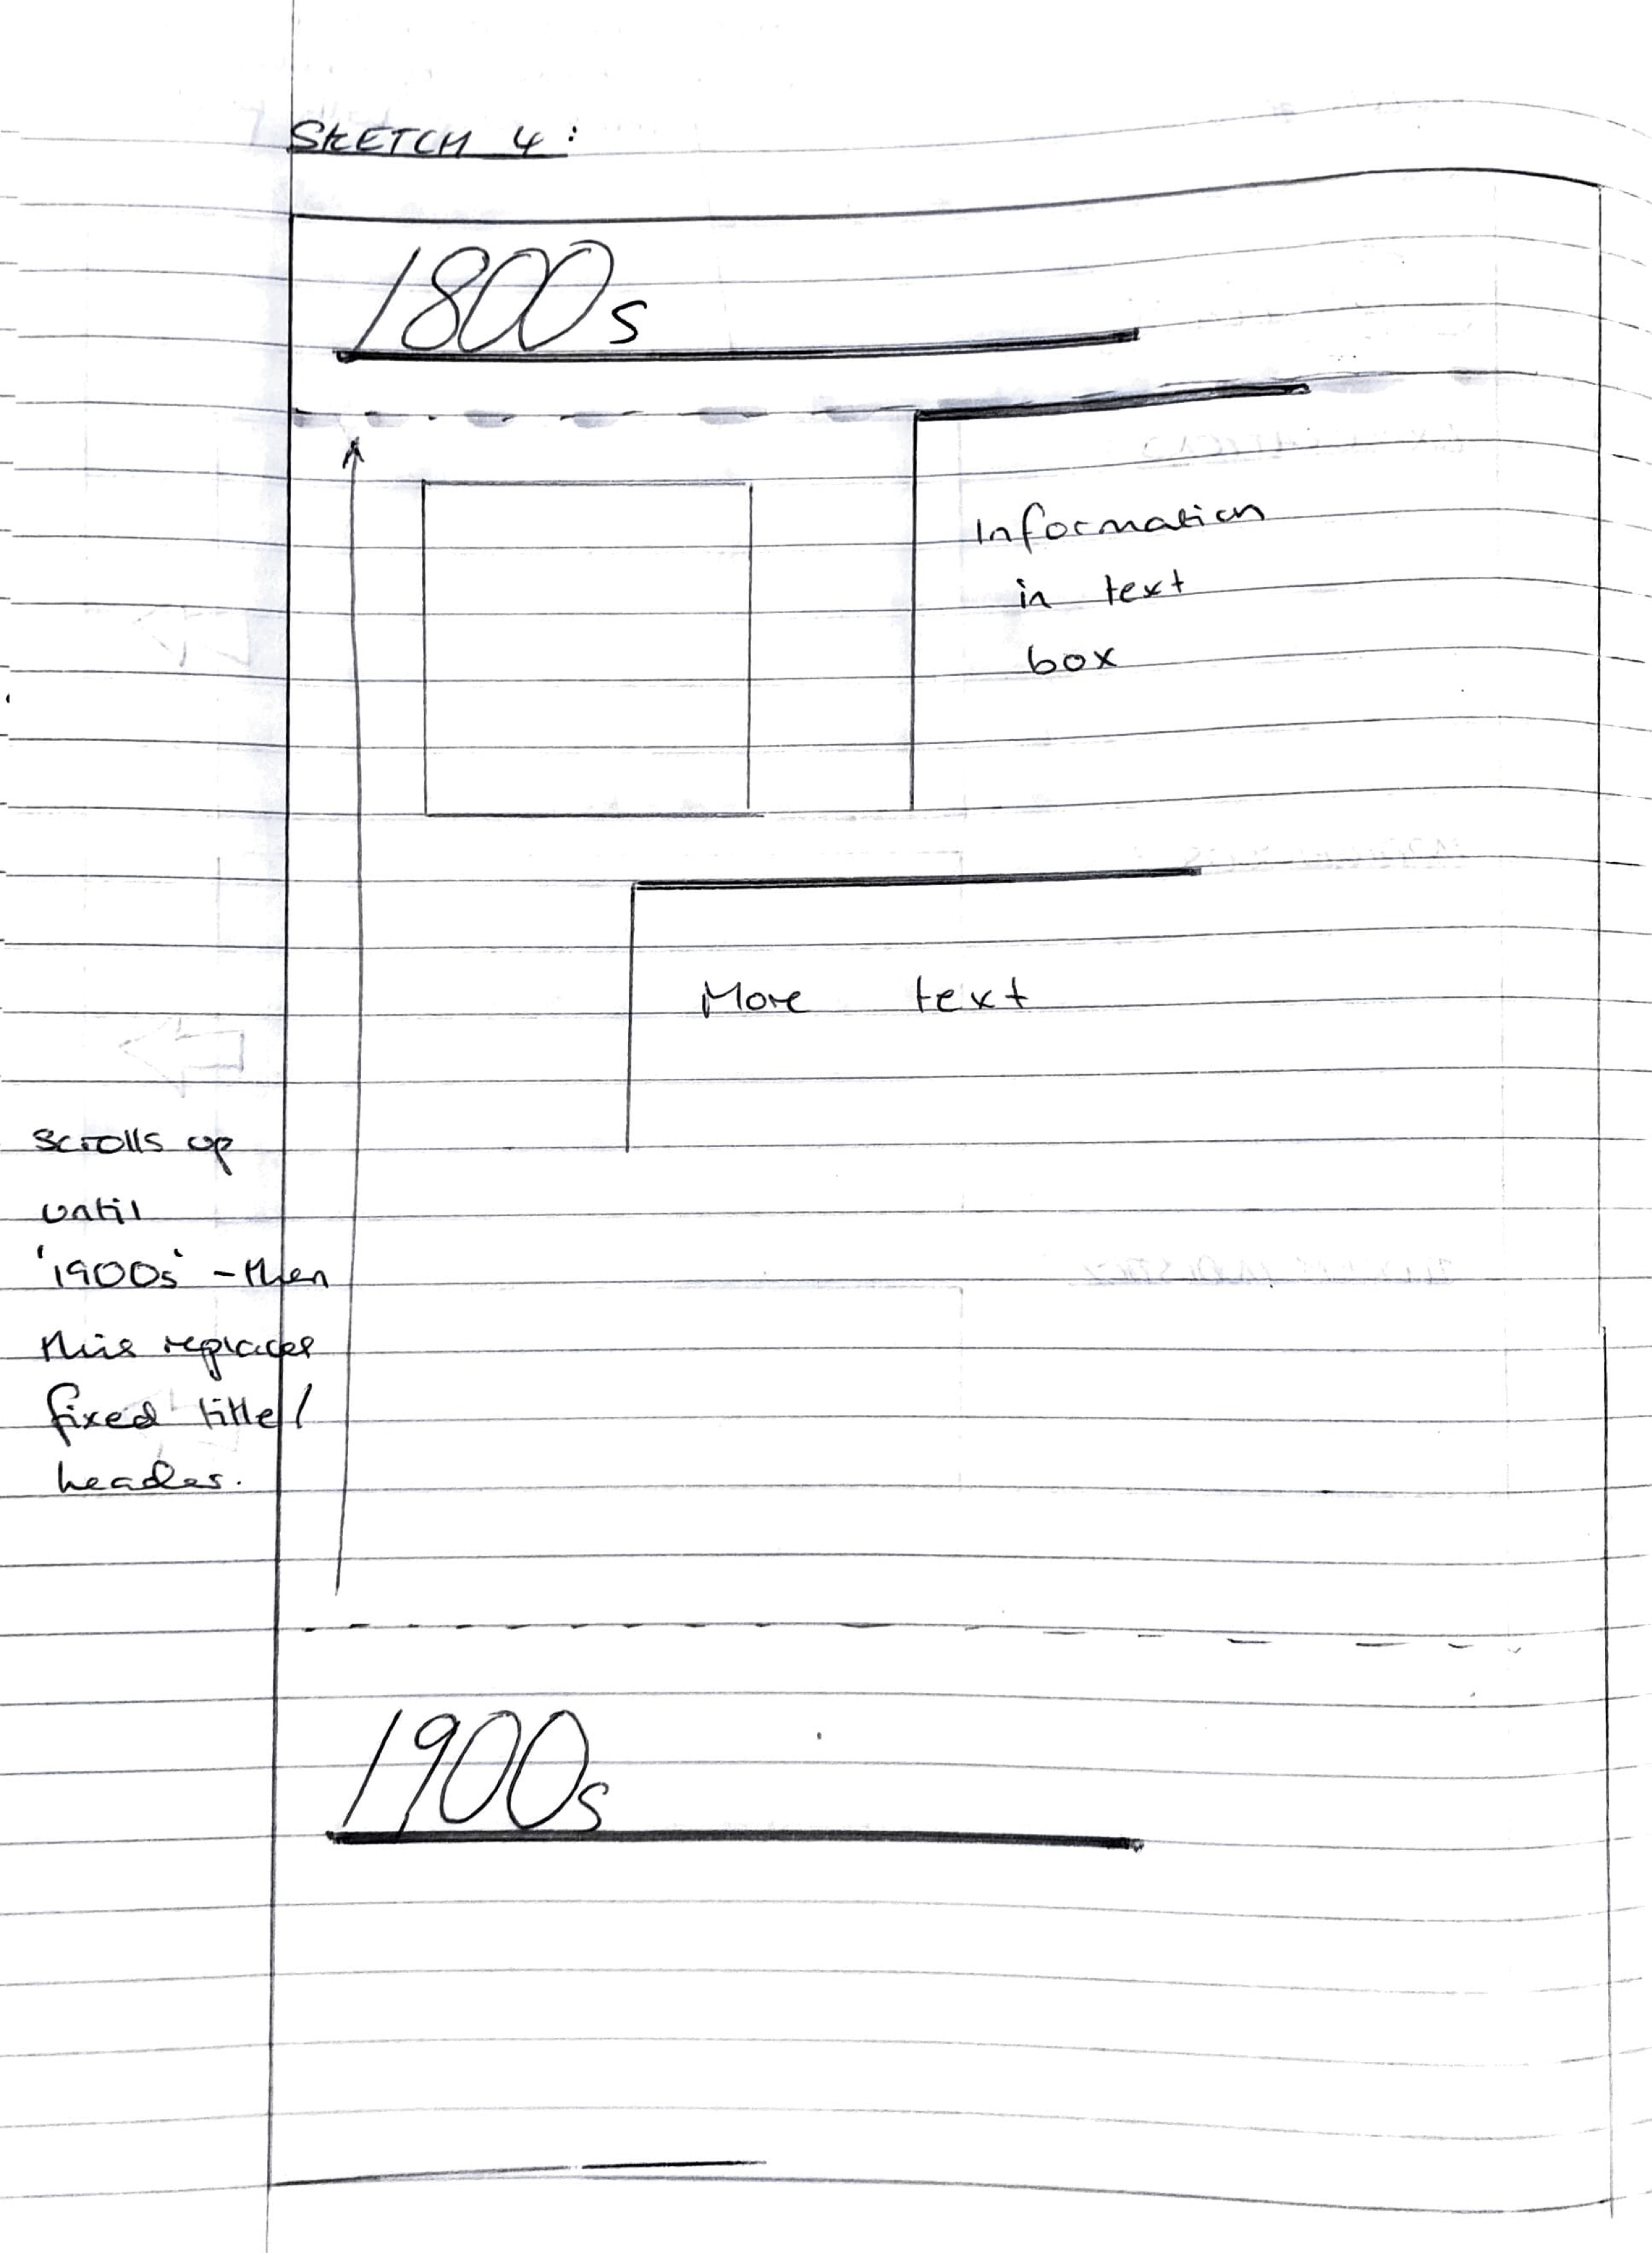 SKETCH 4:
1800s
Information
in text
box
More text
scrolls up
until
'1900s' - then
this replaces
fixed title/
header.
1900s